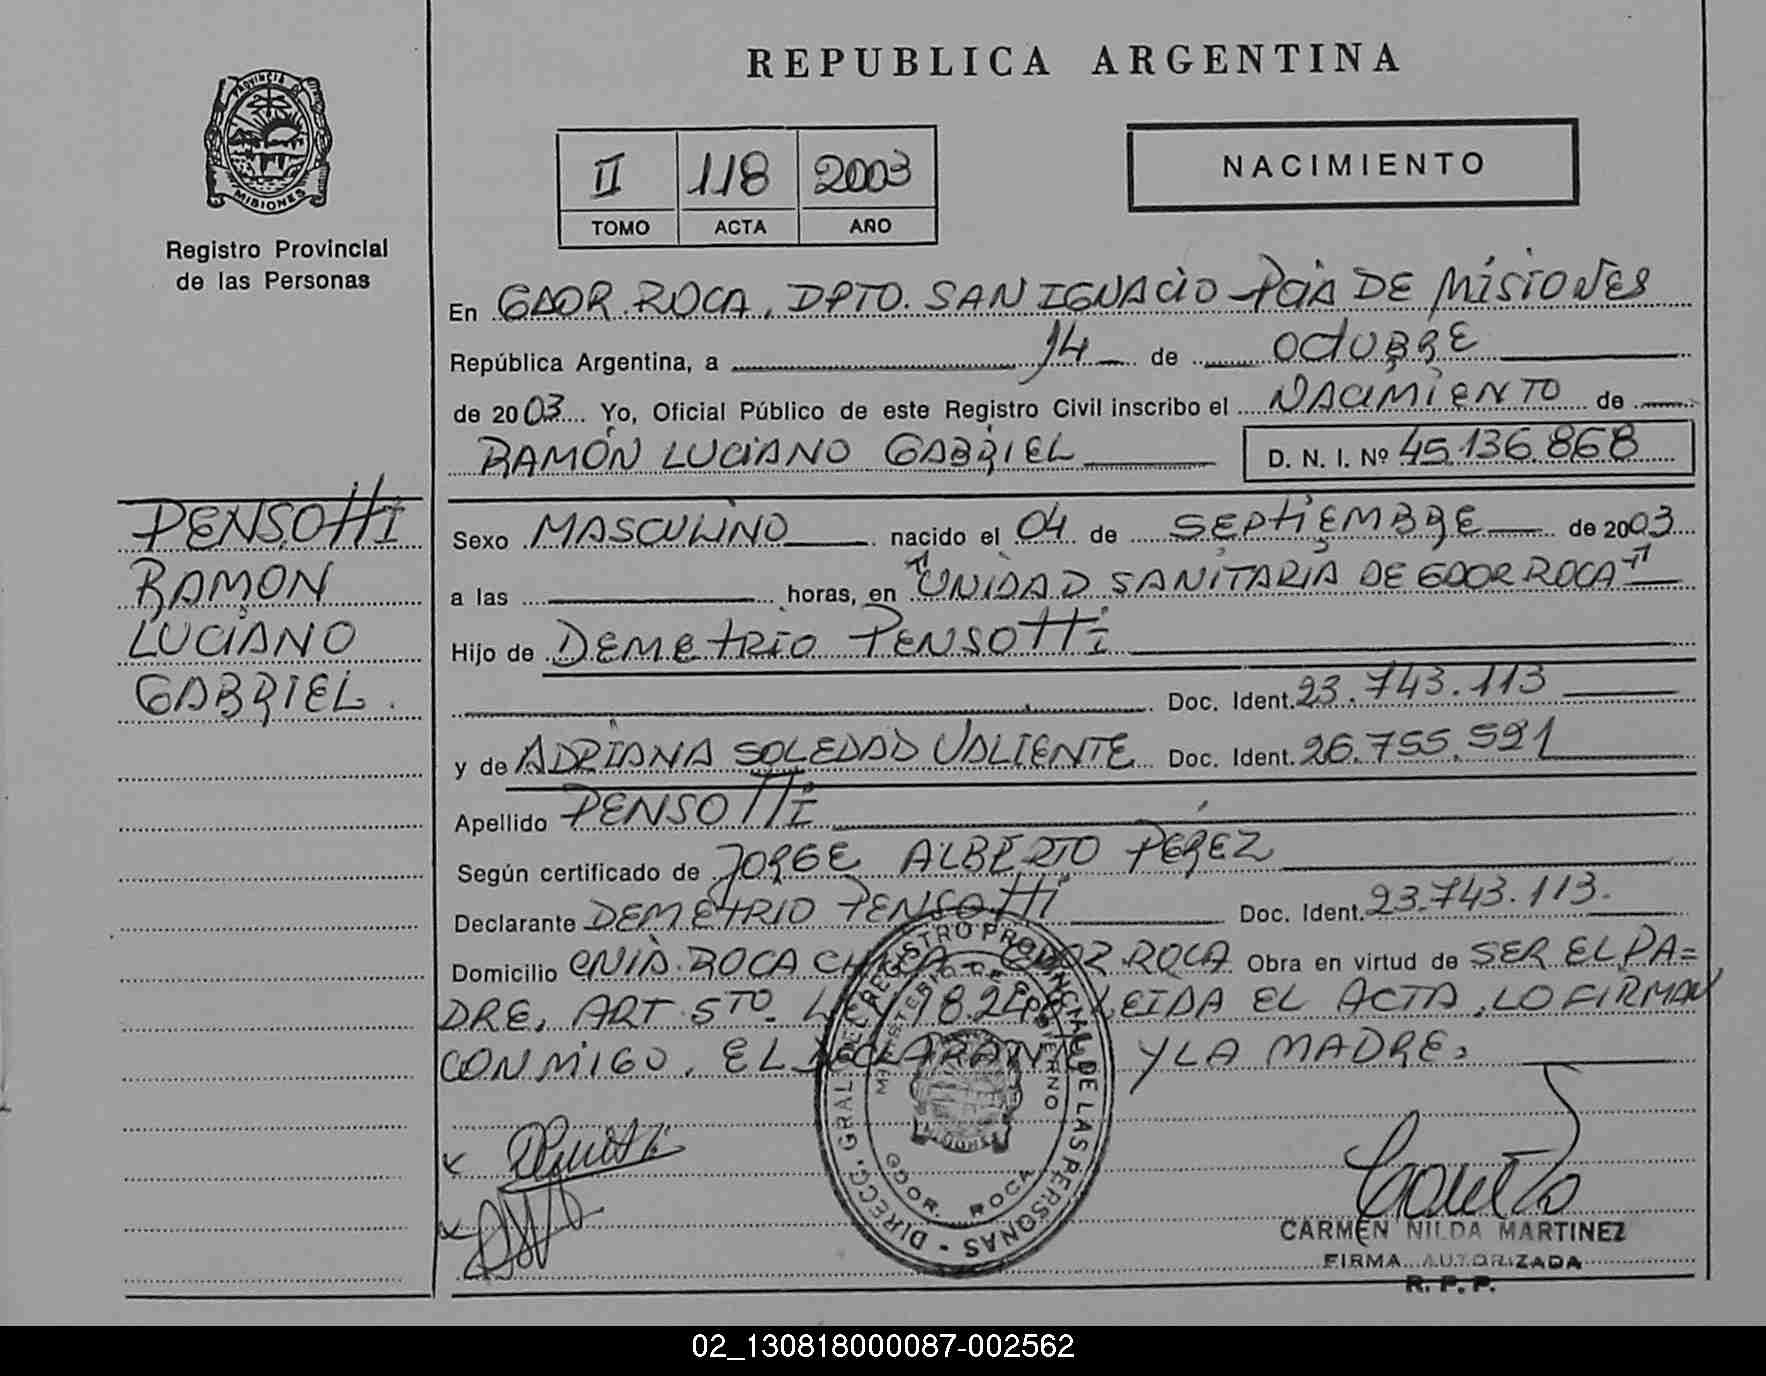 REPUBLICA ARGENTINA
PROVINCIA DE
MISIONES
Registro Provincial
de las Personas
II 118 2003
TOMO ACTA AÑO
NACIMIENTO
En GDOR. ROCA, DPTO. SAN IGNACIO - PCIA DE MISIONES
República Argentina, a 14 de OCTUBRE
de 2003 Yo, Oficial Público de este Registro Civil inscribo el NACIMIENTO de
RAMÓN LUCIANO GABRIEL D. N. I. Nº 45.136.868
PENSOTTI
RAMON
LUCIANO
GABRIEL.
Sexo MASCULINO nacido el 04 de SEPTIEMBRE de 2003
a las horas, en "UNIDAD SANITARIA DE GDOR ROCA"
Hijo de DEMETRIO PENSOTTI
Doc. Ident. 23.743.113
y de ADRIANA SOLEDAD VALIENTE Doc. Ident. 26.755.521
Apellido PENSOTTI
Según certificado de JORGE ALBERTO PÉREZ
Declarante DEMETRIO PENSOTTI Doc. Ident. 23.743.113.
Domicilio CNIA. ROCA CHICA GDOR ROCA Obra en virtud de SER EL PA=
DRE, ART. 5TO. LEY 18.248 LEIDA EL ACTA, LO FIRMAN
CONMIGO, EL DECLARANTE Y LA MADRE.
DIRECC. GRAL. DEL REGISTRO PROVINCIAL DE LAS PERSONAS -
MINISTERIO DE GOBIERNO
MISIONES
GDOR. ROCA
CARMEN NILDA MARTINEZ
FIRMA AUTORIZADA
R. P. P.
02_130818000087-002562